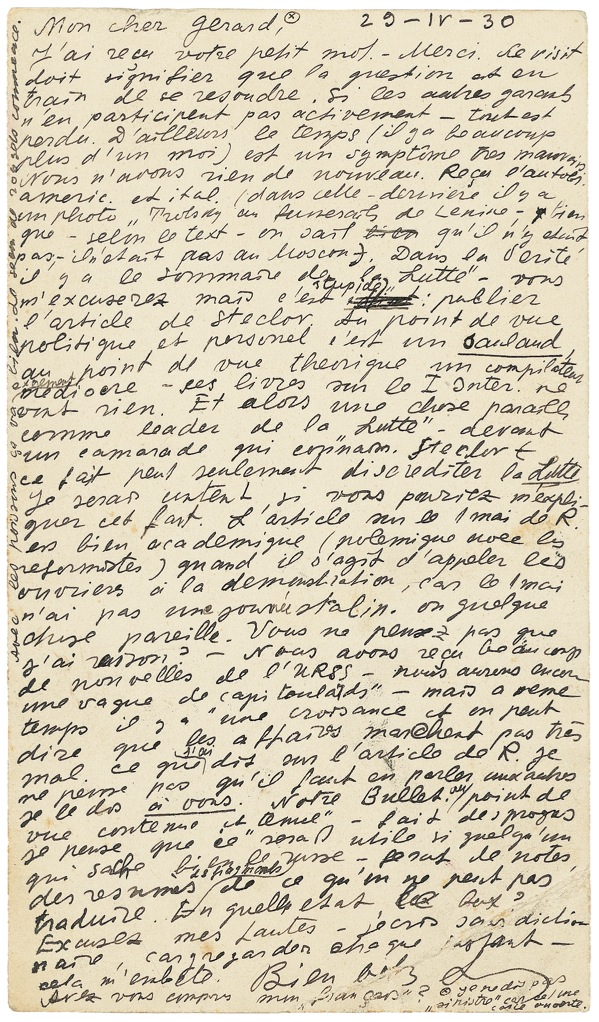 Mon cher Gerard,ⓧ 29-IV-30
J'ai reçu votre petit mot. - Merci. Le visit
doit signifier que la question est en
train de se resoudre. Si les autres garants
n'en participent pas activement - tout est
perdu. D'ailleurs le temps (il y a beaucoup
plus d'un moi) est un symptôme tres mauvais
Nous n'avons rien de nouveau. Reçu l'autob.
americ. et ital. (dans cette derniere il y a
un photo "Trotsky au funerails de Lenine - bien
que - selon le text - on sait qu'il n'y etait
pas - il n'etait pas au Moscou). Dans la Verité
il y a le sommaire de la "Lutte" - vous
m'excuserez mais c'est stupide : publier
l'article de Steclov. Du point de vue
politique et personel c'est un saulaud,
au point de vue theorique un compilateur
mediocre - ses livres sur le I Inter. ne
vont rien. Et alors une chose pareille
comme leader de la "Lutte" - devant
un camarade qui connait Steclov
ce fait peut seulement discrediter la Lutte
Je serais content si vous pouriez m'expli-
quer cet fait. L'article sur le 1 mai de R.
est bien academique (polemique avec les
reformistes) quand il s'agit d'appeler les
ouvriers à la demonstration, car le 1 mai
n'ai pas une Stalin. ou quelque
chose pareille. Vous ne pensez pas que
j'ai raison? - Nous avons reçu beaucoup
de nouvelles de l'URSS - nous aurons encore
une vague de "capitoulards" - mais a meme
temps il y a "une croissance et on peut
dire que les affaires marchent pas très
mal. Ce que j'ai dit sur l'article de R. je
ne pense pas qu'il faut en parler aux autres
je le dis à vous. Notre Bullet. au point de
vue contenue et "tenue" - fait des progres
Je pense que ce serait utile si quelqu'un
qui sache bien le russe - ferait de notes,
des resumes, de ce qu'on ne peut pas
traduire. En quelle etat box?
Excusez mes fautes - j'ecris sans diction
naire, car regarder chaque instant -
cela m'embete. Bien
Avez vous compris mon "français"? ⓧ je ne dis pas
"sinistre" car c'est une
carte ouverte.